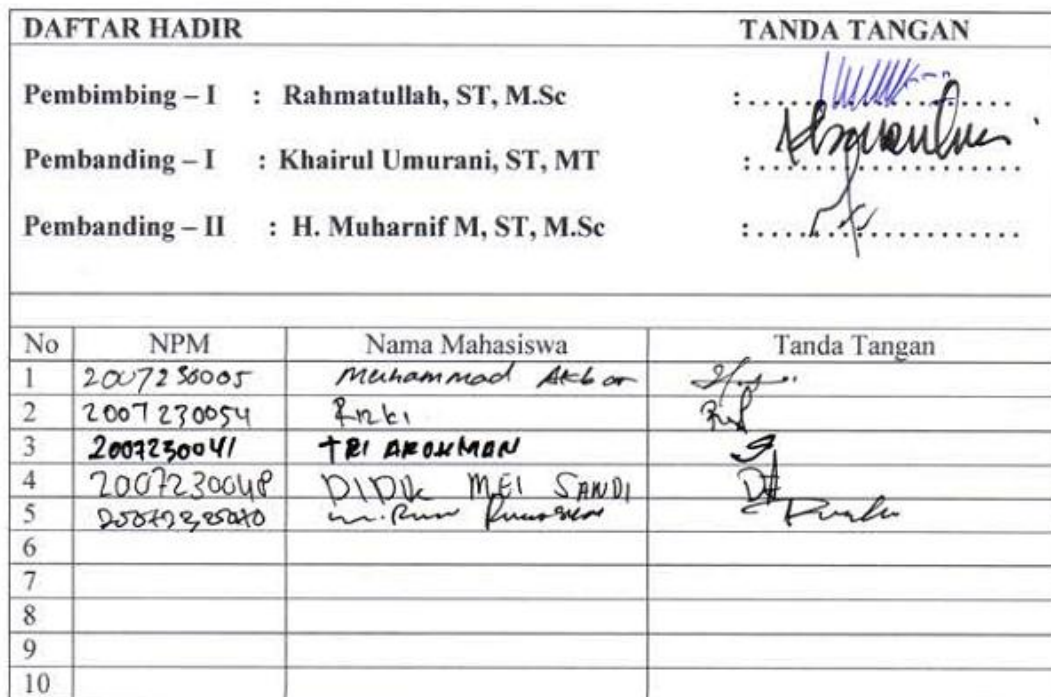 DAFTAR HADIR TANDA TANGAN
Pembimbing – I : Rahmatullah, ST, M.Sc :
Pembanding – I : Khairul Umurani, ST, MT :
Pembanding – II : H. Muharnif M, ST, M.Sc :
No NPM Nama Mahasiswa Tanda Tangan
1 2007230005 Muhammad Akbar
2 2007230054 Rizki
3 2007230041 TRI AROHMAN
4 2007230048 DIDIK MEI SANDI
5
6
7
8
9
10